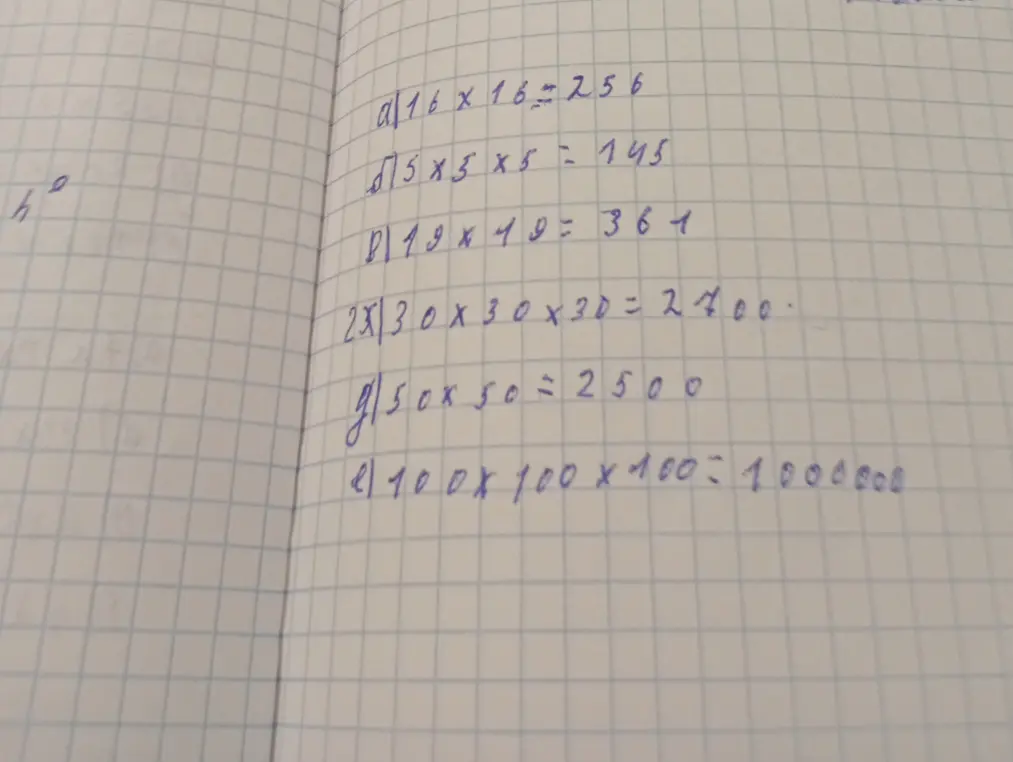 а) 16 x 16 = 256
б) 5 x 5 x 5 = 145
в) 19 x 19 = 361
г) 30 x 30 x 30 = 2700.
д) 50 x 50 = 2500
е) 100 x 100 x 100 = 1000000